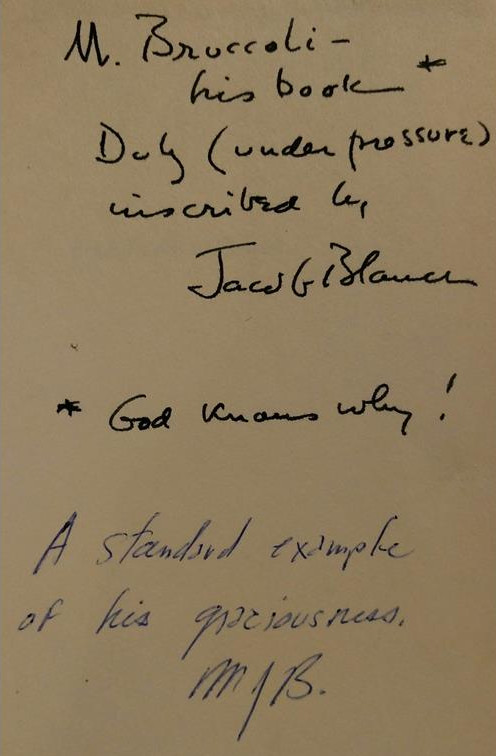 M. Bruccoli –
his book *
Duly (under pressure)
inscribed by
Jacob Blanck
* God knows why!
A standard example
of his graciousness.
MJB.